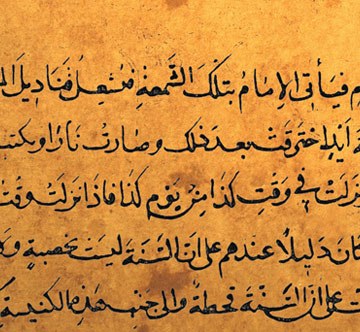 م فيأتي الإمامُ بتلكَ الشمعةِ فيُشعِلُ قناديلَ الم
ة أيدٍ احترقتْ بعد ذلك وصارتْ نارًا ويكتب
نزلتْ في وقتِ كذا مِن يوم كذا فاذا نزلتْ وقتَ
كان دليلاً عندهم على انّ السّنةَ ليستْ بخصبةٍ و
على انّ السّنةَ قحطةٌ والى جنبِ هذه الكنيسة